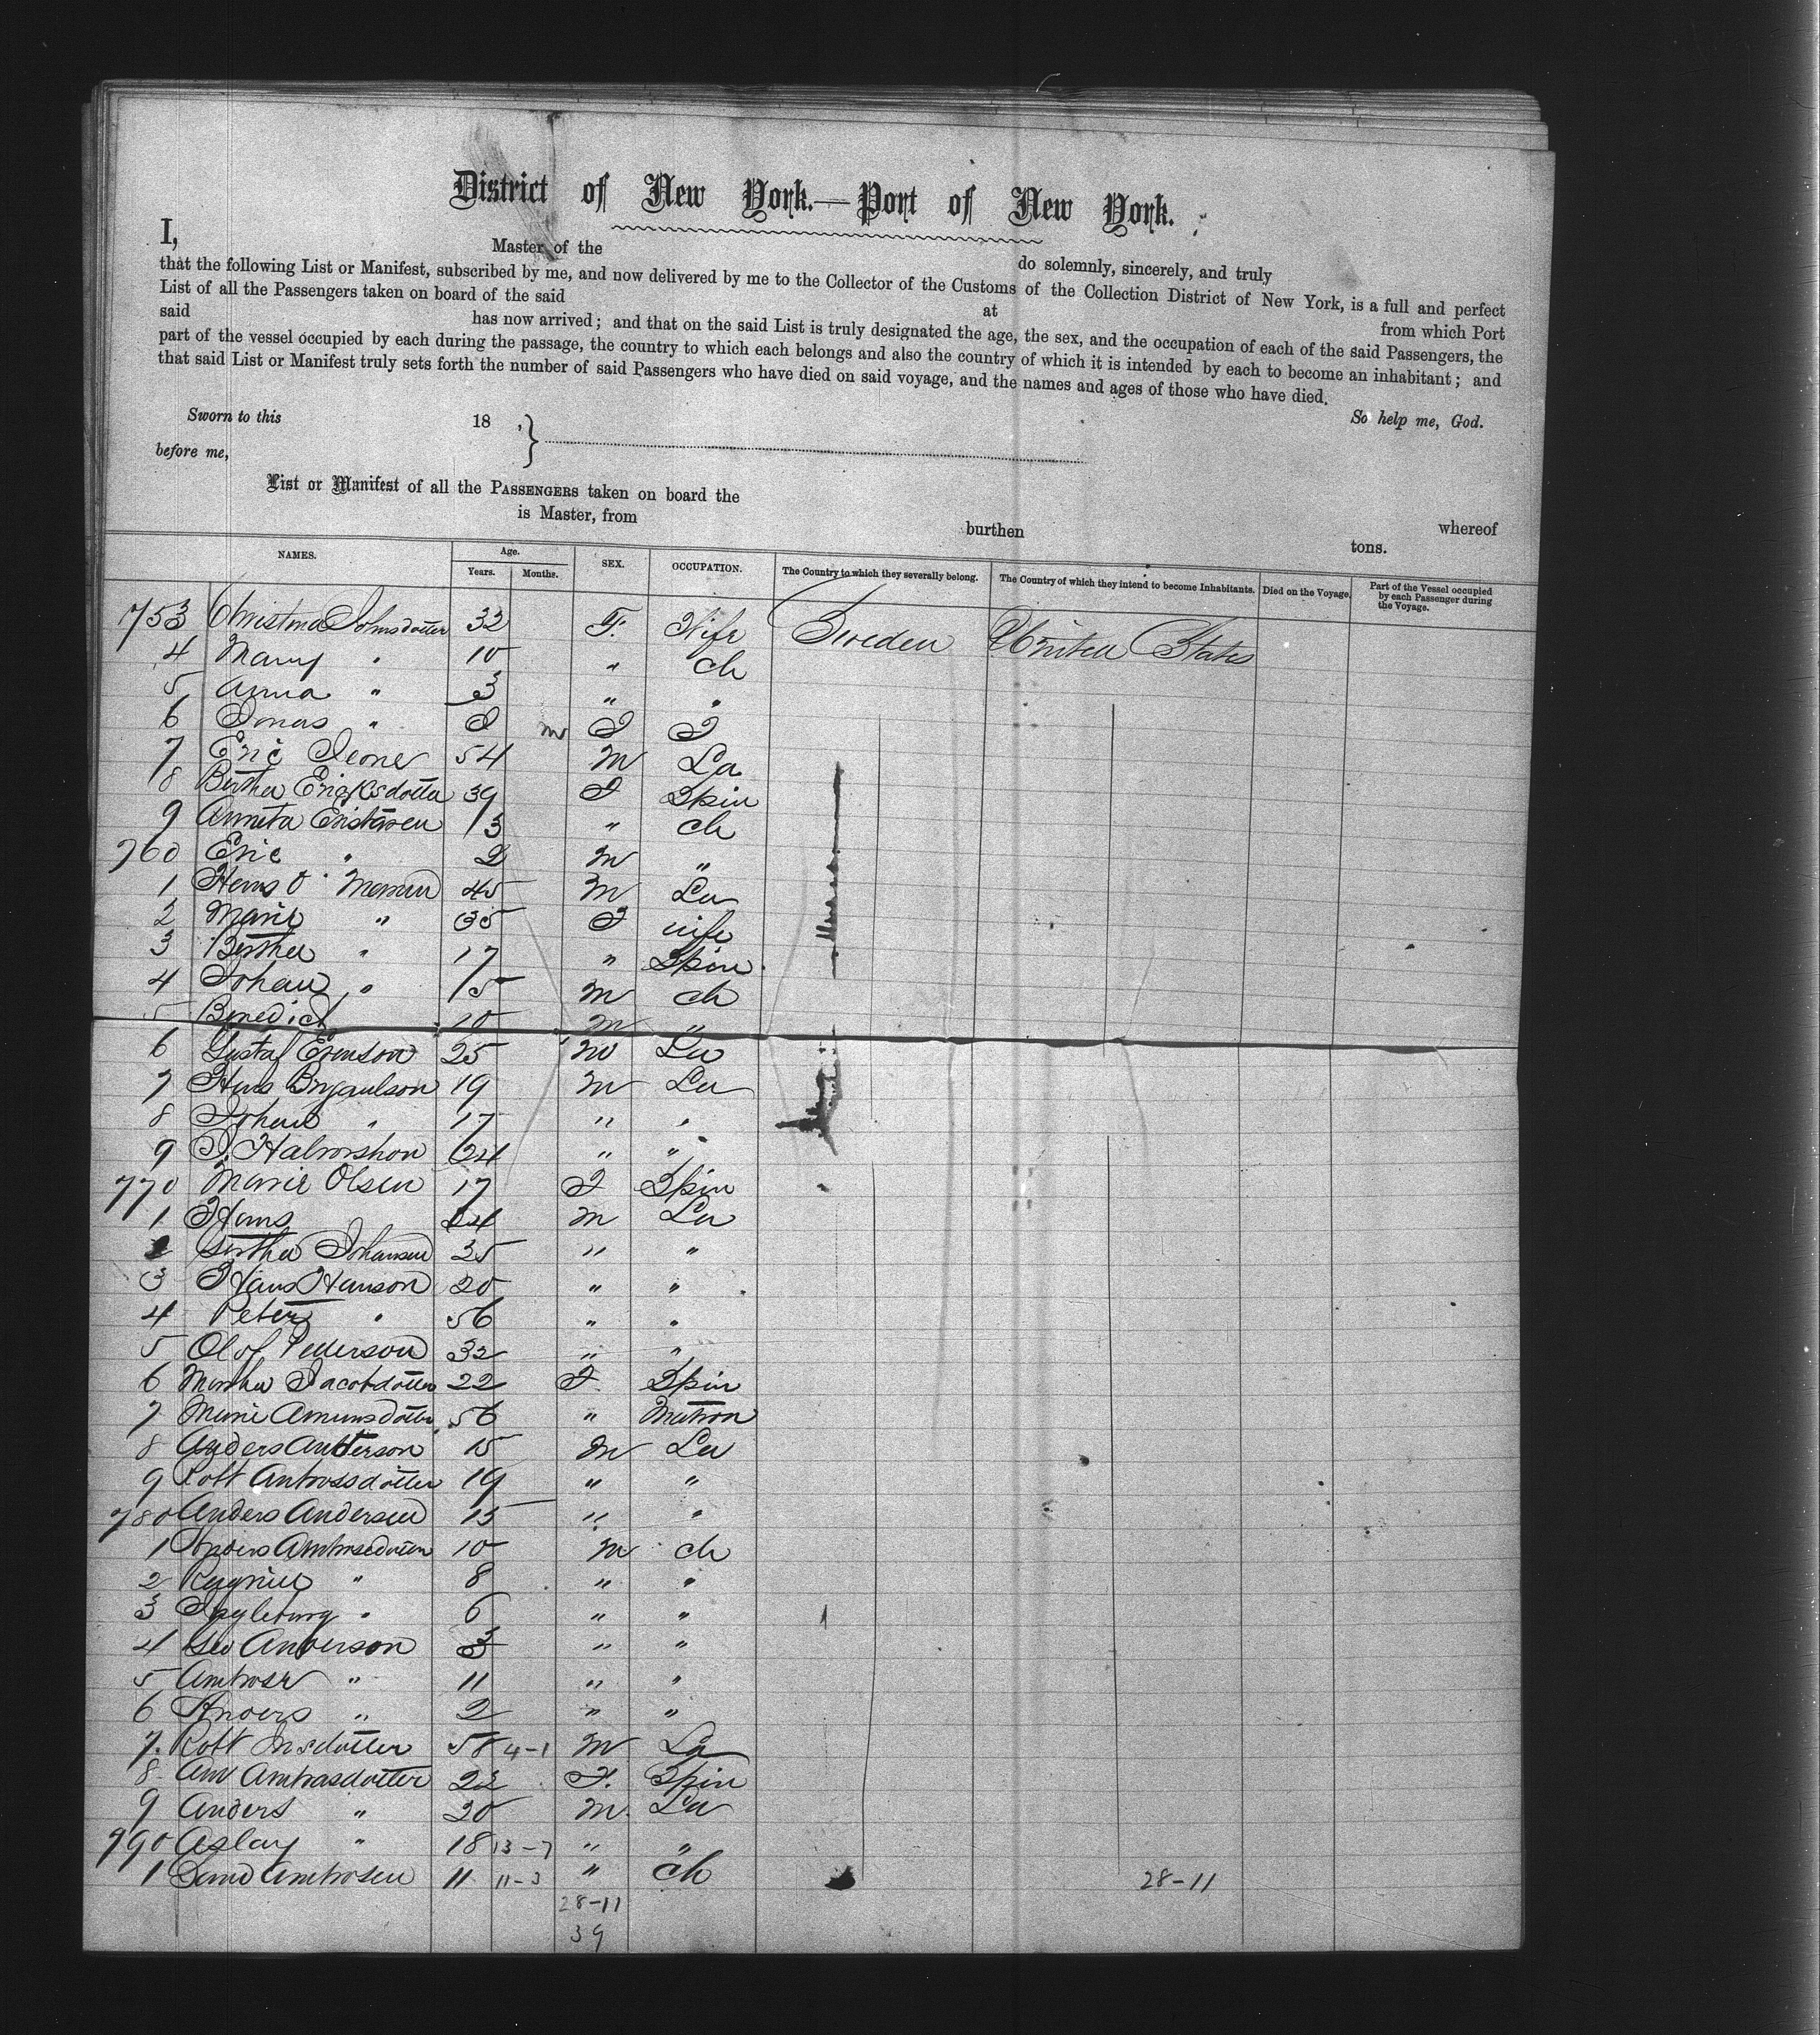 District of New York.—Port of New York.
I, Master of the do solemnly, sincerely, and truly
that the following List or Manifest, subscribed by me, and now delivered by me to the Collector of the Customs of the Collection District of New York, is a full and perfect
List of all the Passengers taken on board of the said at from which Port
said has now arrived; and that on the said List is truly designated the age, the sex, and the occupation of each of the said Passengers, the
part of the vessel occupied by each during the passage, the country to which each belongs and also the country of which it is intended by each to become an inhabitant; and
that said List or Manifest truly sets forth the number of said Passengers who have died on said voyage, and the names and ages of those who have died.
So help me, God.
Sworn to this 18 ,
before me,
List or Manifest of all the PASSENGERS taken on board the whereof
is Master, from burthen tons.
NAMES. Age. Years. Months. SEX. OCCUPATION. The Country to which they severally belong. The Country of which they intend to become Inhabitants. Died on the Voyage. Part of the Vessel occupied by each Passenger during the Voyage.
753 Christina Johnsdotter 32 F. Wife Sweden United States
4 Mary " 10 " ch
5 Anna " 3 " "
6 Jonas "
7 Eric 54 M La
8 Bertha Ericksdotter 39 F Spin
9 13 " ch
760 Eric " 2 M "
1 Hans O 45 M La
2 Marie " 35 F wife
3 Bertha " 17 " Spin
4 Johan " 15 M ch
5 Benedict 10 M "
6 Gustaf Evenson 25 M La
7 Hans 19 M La
8 Johan " 17 " "
9 Halvorshon 64 " "
770 Marie Olsen 17 F Spin
1 Hans 24 M La
2 Johansen 35 " "
3 Hans Hanson 20 " "
4 Peter " 56 " "
5 Olof Pederson 32 " "
6 Martha Jacobdotter 22 F. Spin
7 Marie Amunsdotter 56 " Matron
8 Anders Anderson 15 M La
9 Kott Ambrossdotter 19 " "
780 Anders Andersen 15 " "
1 Ambrosedotter 10 M ch
2 " 8 " "
3 " 6 " "
4 Anderson 3 " "
5 Ambrose " 11 " "
6 Anders " 2 " "
7. Kott 58 4-1 M La
8 Ann Ambrasdotter 22 F. Spin
9 Anders " 20 M. La
790 Aslay " 18 13-7 " "
1 Ambrosen 11 11-3 " ch 28-11
28-11
39